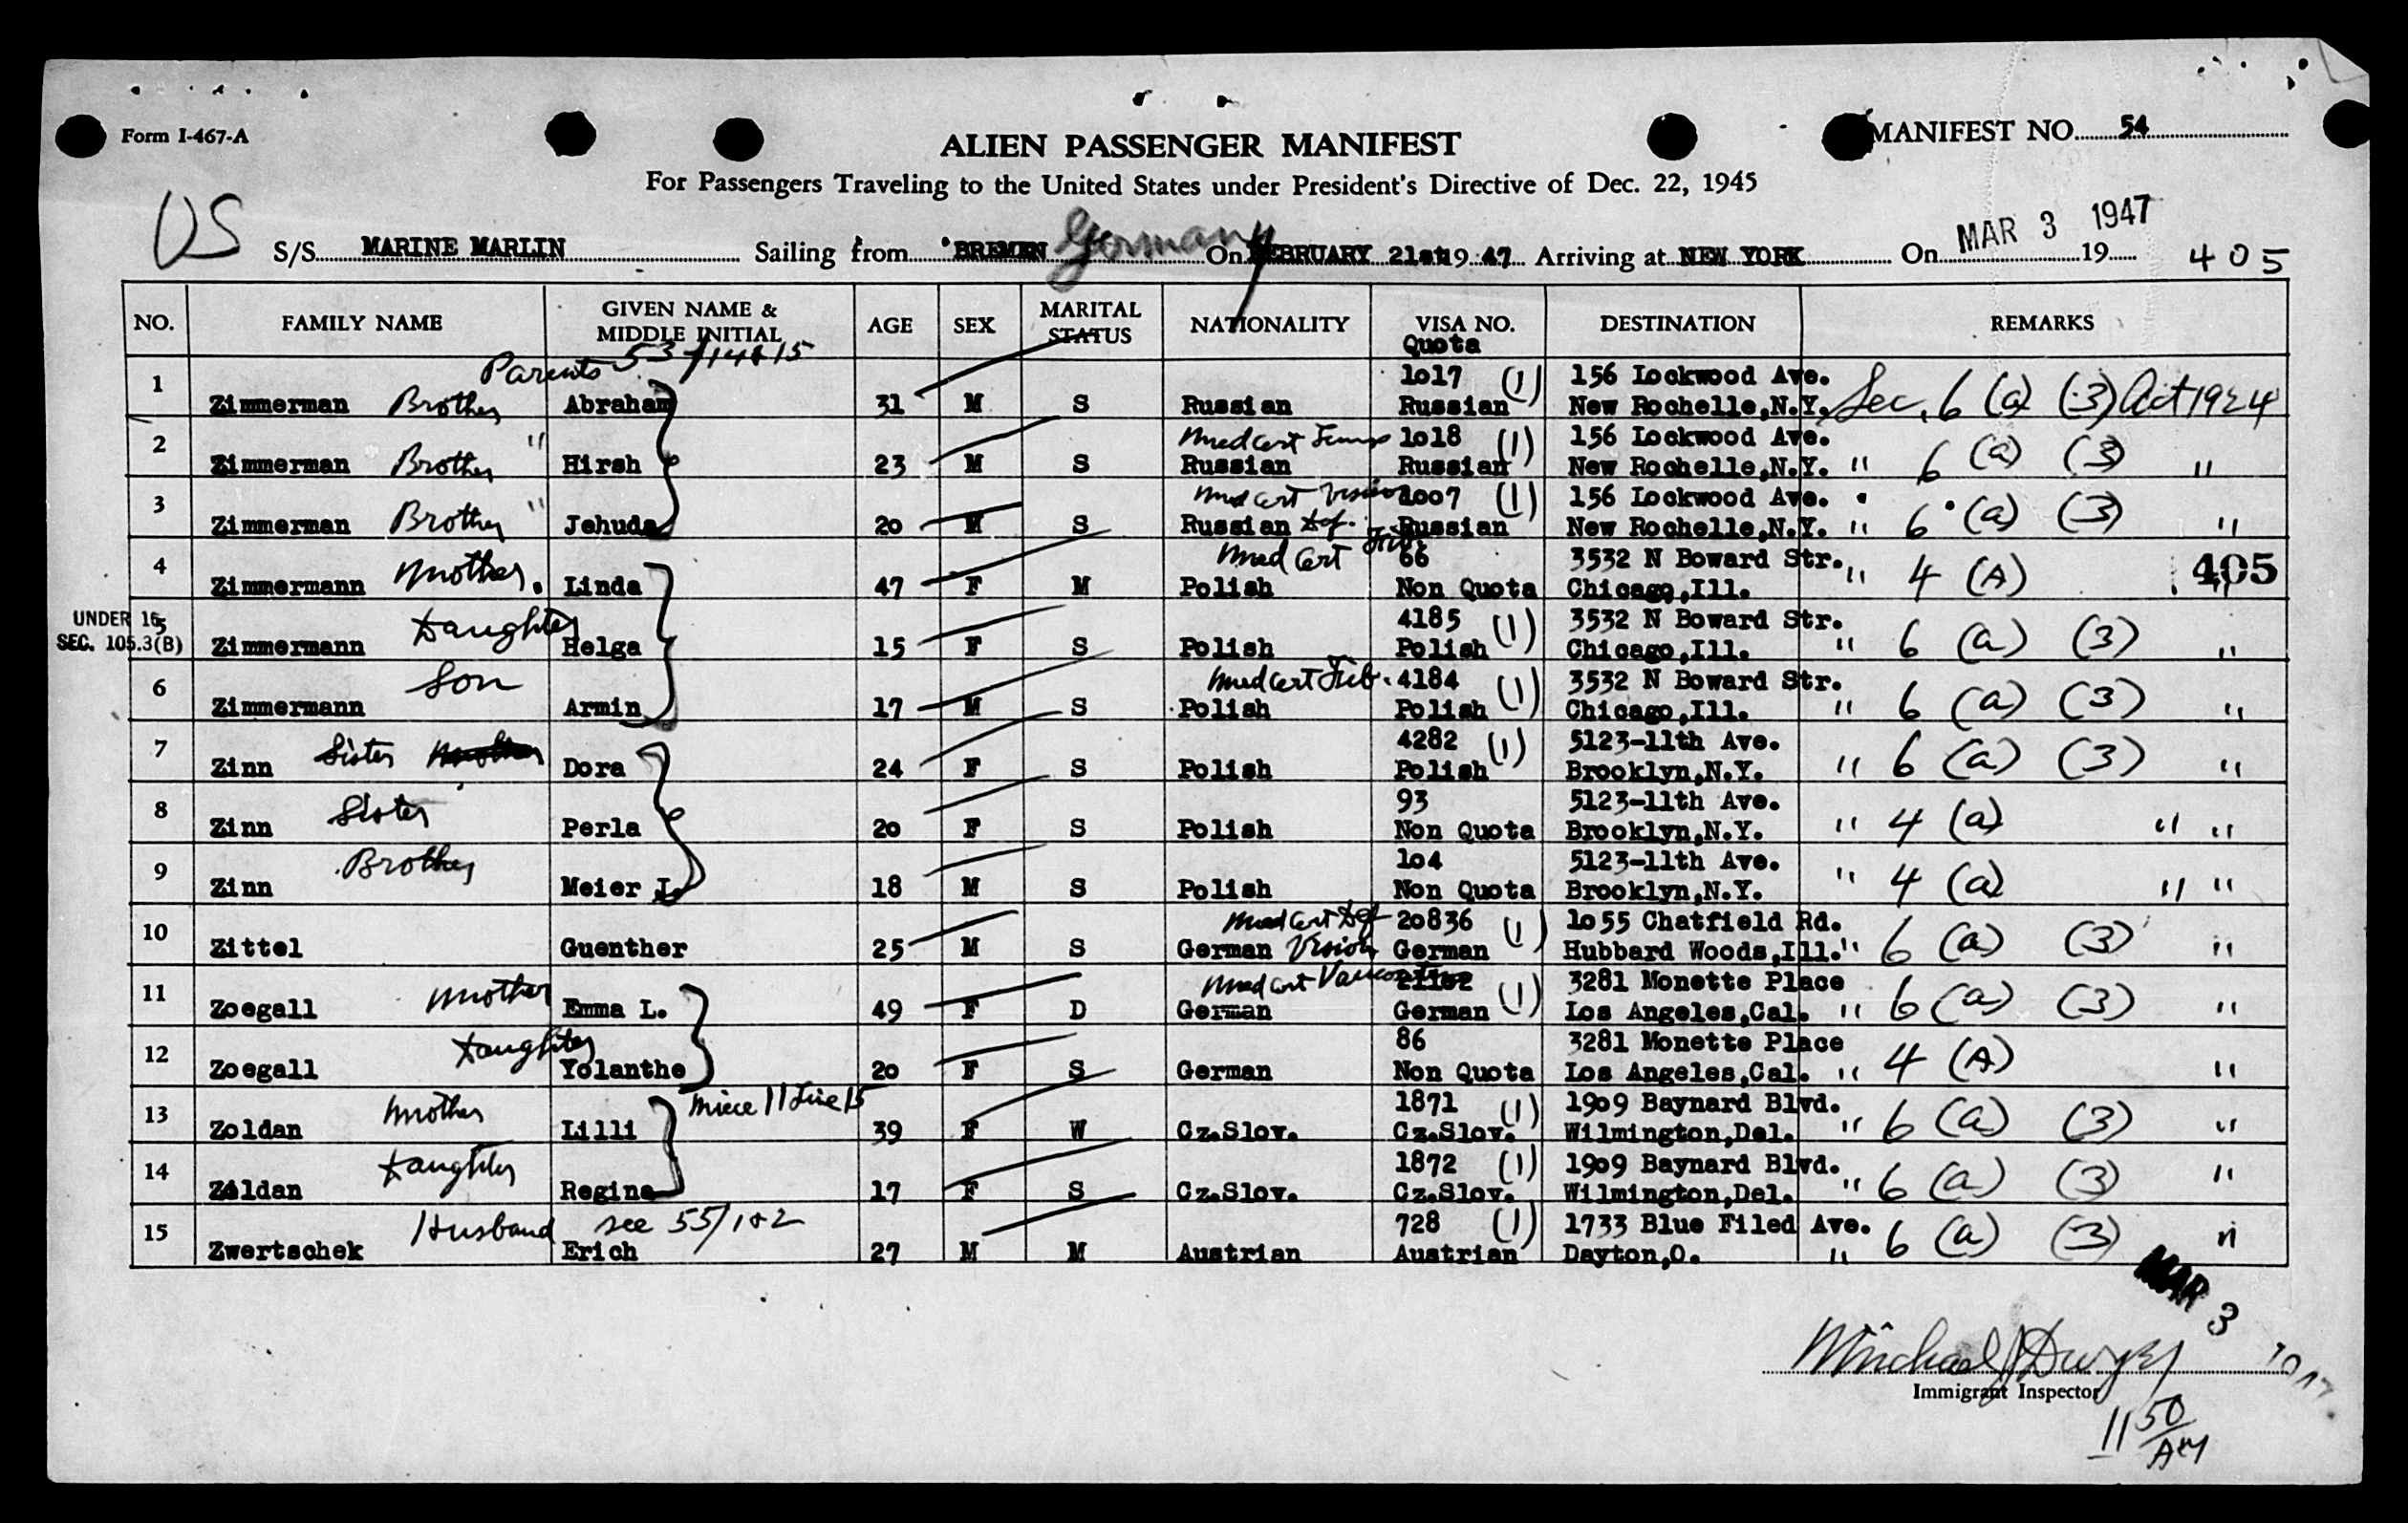 Form I-467-A
ALIEN PASSENGER MANIFEST
MANIFEST NO. 54
For Passengers Traveling to the United States under President's Directive of Dec. 22, 1945
US
S/S MARINE MARLIN Sailing from BREMEN Germany On FEBRUARY 21st 19 47 Arriving at NEW YORK On MAR 3 1947 19 405
NO. FAMILY NAME GIVEN NAME & MIDDLE INITIAL AGE SEX MARITAL STATUS NATIONALITY VISA NO. Quota DESTINATION REMARKS
Parents 53/14&15
1 1017 (1) 156 Lockwood Ave.
Zimmerman Brother Abraham 31 M S Russian Russian New Rochelle,N.Y. Sec. 6 (a) (3) Act 1924
2 " Med Cert 1018 (1) 156 Lockwood Ave.
Zimmerman Brother Hirsh 23 M S Russian Russian New Rochelle,N.Y. " 6 (a) (3) "
3 " Med Cert Vision 1007 (1) 156 Lockwood Ave.
Zimmerman Brother Jehuda 20 M S Russian Def. Russian New Rochelle,N.Y. " 6 (a) (3) "
4 Med Cert 66 3532 N Boward Str.
Zimmermann Mother. Linda 47 F M Polish Non Quota Chicago,Ill. " 4 (A) 405
UNDER 16 5 4185 (1) 3532 N Boward Str.
SEC. 105.3(B) Zimmermann Daughter Helga 15 F S Polish Polish Chicago,Ill. " 6 (a) (3) "
6 Son Med Cert Tub. 4184 (1) 3532 N Boward Str.
Zimmermann Armin 17 M S Polish Polish Chicago,Ill. " 6 (a) (3) "
7 4282 (1) 5123-11th Ave.
Zinn Sister Mother Dora 24 F S Polish Polish Brooklyn,N.Y. " 6 (a) (3) "
8 93 5123-11th Ave.
Zinn Sister Perla 20 F S Polish Non Quota Brooklyn,N.Y. " 4 (a) " "
9 104 5123-11th Ave.
Zinn Brother Meier I. 18 M S Polish Non Quota Brooklyn,N.Y. " 4 (a) " "
10 Med Cert Def 20836 (1) 1055 Chatfield Rd.
Zittel Guenther 25 M S German Vision German Hubbard Woods,Ill. " 6 (a) (3) "
11 Med Cert (1) 3281 Monette Place
Zoegall Mother Emma L. 49 F D German German Los Angeles,Cal. " 6 (a) (3) "
12 86 3281 Monette Place
Zoegall Daughter Yolanthe 20 F S German Non Quota Los Angeles,Cal. " 4 (A) "
Niece 11 Line 15
13 1871 (1) 1909 Baynard Blvd.
Zoldan Mother Lilli 39 F W Cz.Slov. Cz.Slov. Wilmington,Del. " 6 (a) (3) "
14 1872 (1) 1909 Baynard Blvd.
Zoldan Daughter Regina 17 F S Cz.Slov. Cz.Slov. Wilmington,Del. " 6 (a) (3) "
15 Husband see 55/1&2 728 (1) 1733 Blue Filed Ave.
Zwertschek Erich 27 M M Austrian Austrian Dayton,O. " 6 (a) (3) "
MAR 3 1947
Michael J Dwyer
Immigrant Inspector
11 50 AM